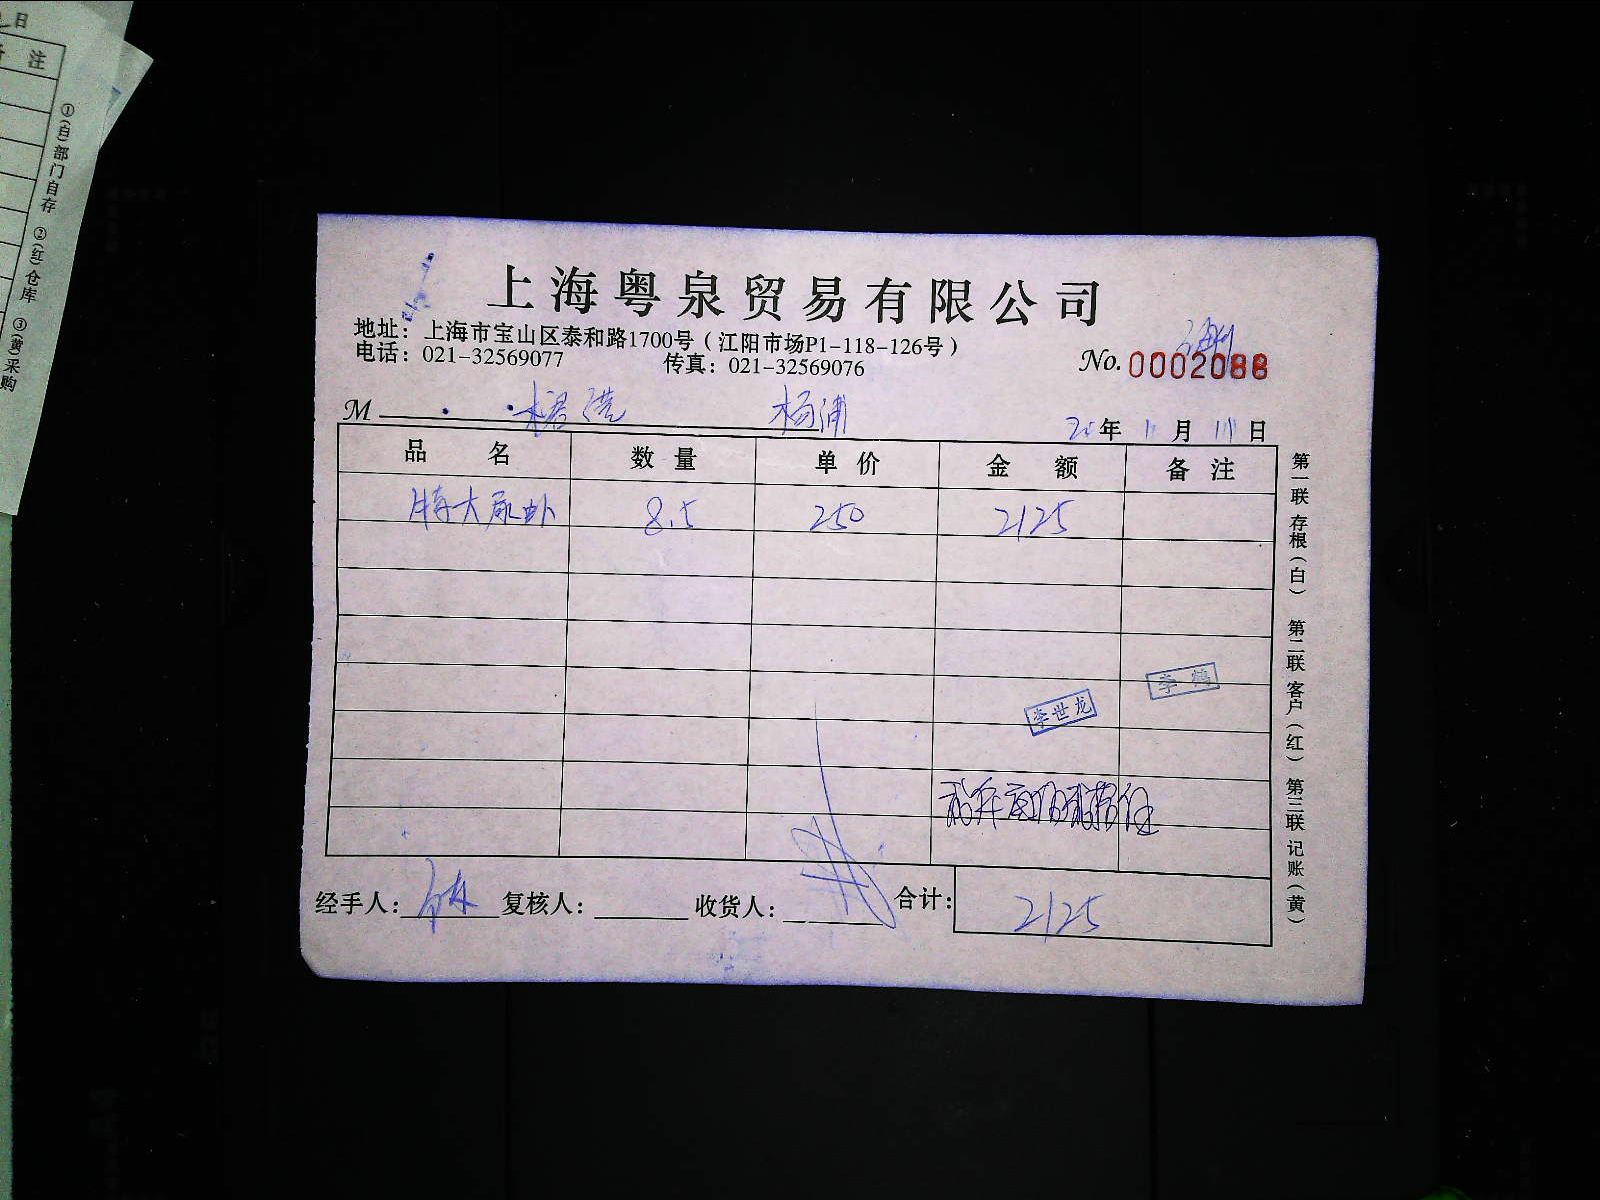 日
注
①(白)部门自存 ②(红)仓库 ③(黄)采购
上海粤泉贸易有限公司
地址：上海市宝山区泰和路1700号（江阳市场P1-118-126号）
电话：021-32569077 传真：021-32569076
No. 0002088
M 杨浦
20年 11月 11日
品名 数量 单价 金额 备注
特大尿虾 8.5 250 2125
李世龙
李鹤
经手人： 复核人： 收货人： 合计： 2125
第一联 存根(白) 第二联 客户(红) 第三联 记账(黄)